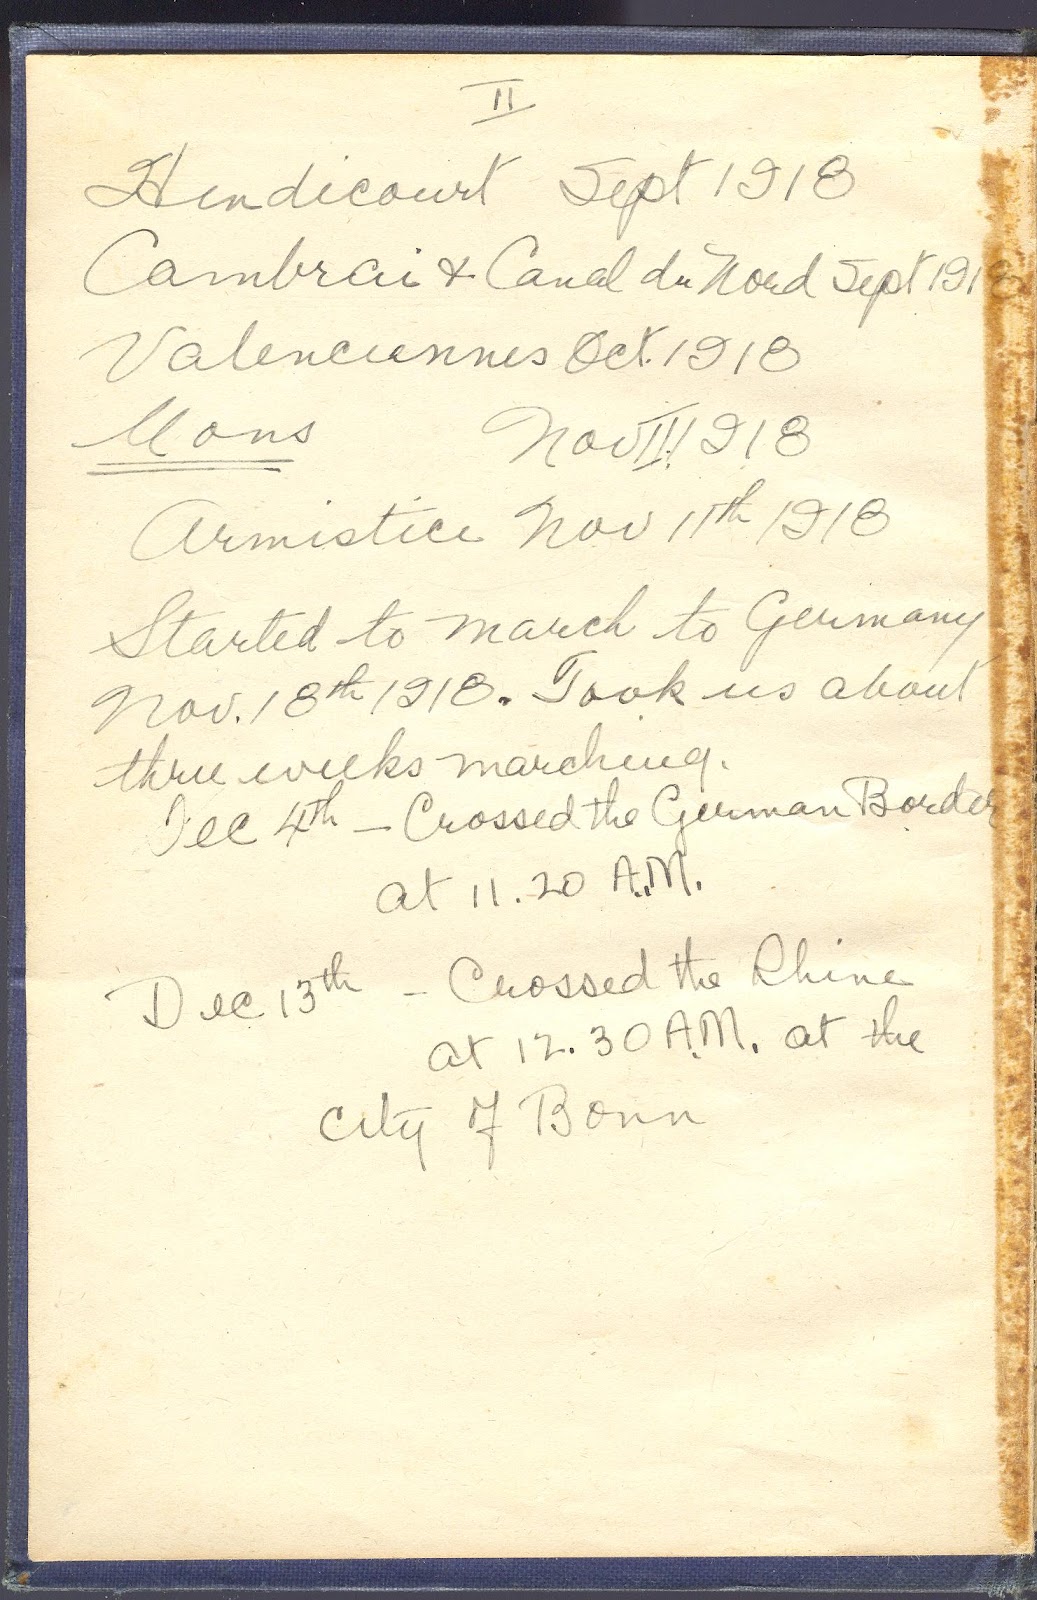 II
Hendicourt Sept 1918
Cambrai & Canal du Nord Sept 1918
Valenciennes Oct. 1918
Mons Nov II 1918
Armistice Nov 11th 1918
Started to march to Germany
Nov. 18th 1918. Took us about
three weeks marching.
Dec 4th - Crossed the German Border
at 11.20 A.M.
Dec 13th - Crossed the Rhine
at 12.30 A.M. at the
city of Bonn